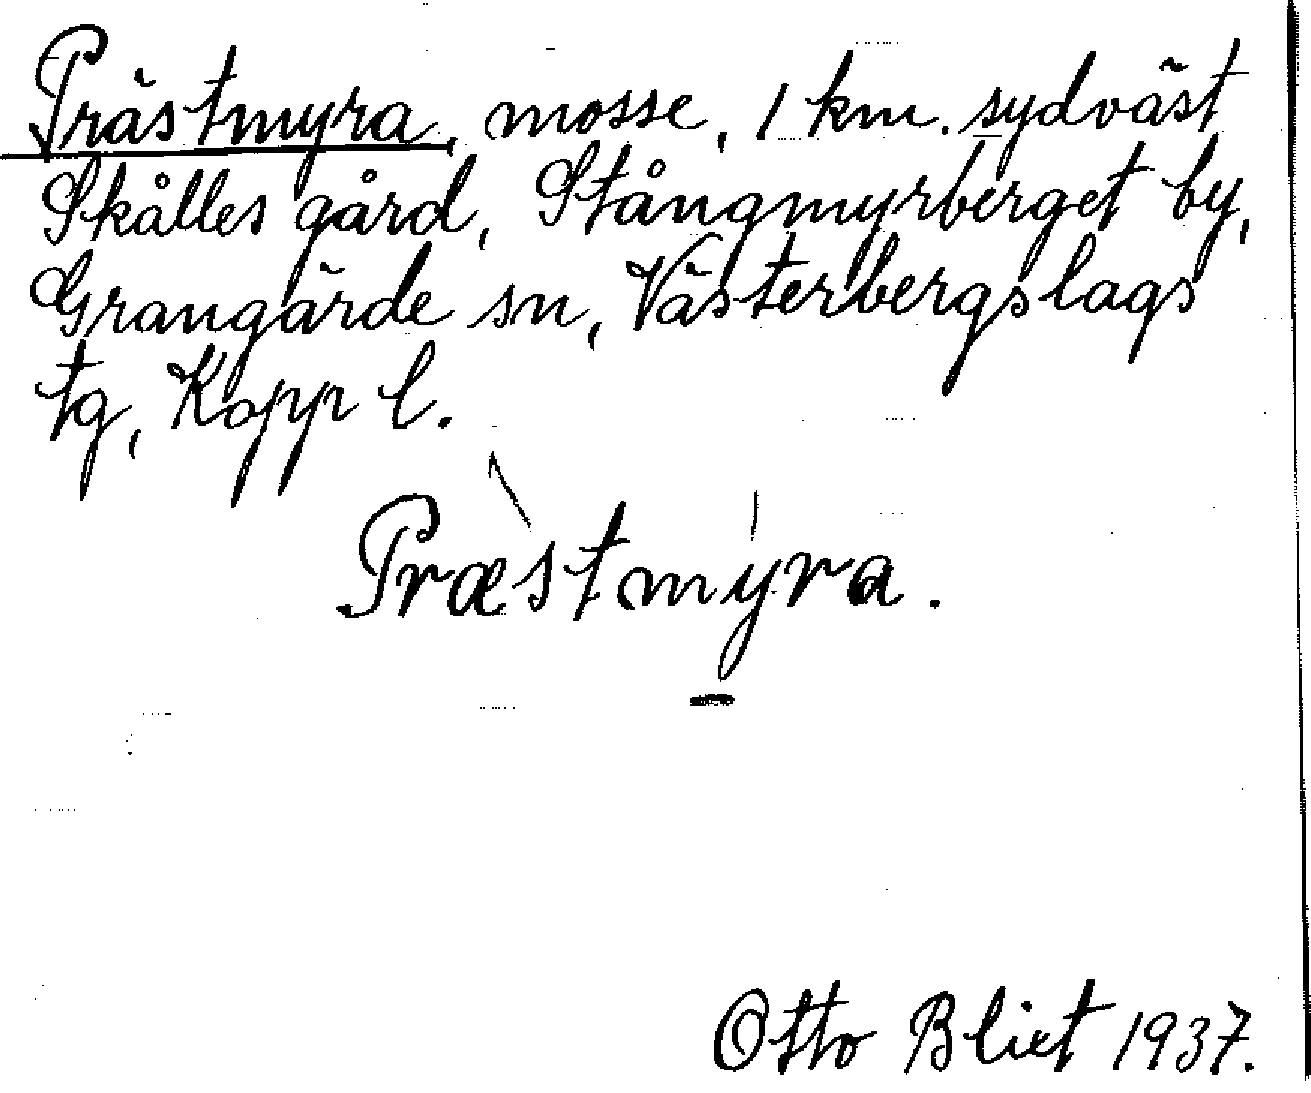 Prästmyra, mosse, 1 km. sydväst
Skålles gård, Stångmyrberget by,
Grangärde sn, Västerbergslags
tg, Kopp l.
Præstmyra.
Otto Blixt 1937.